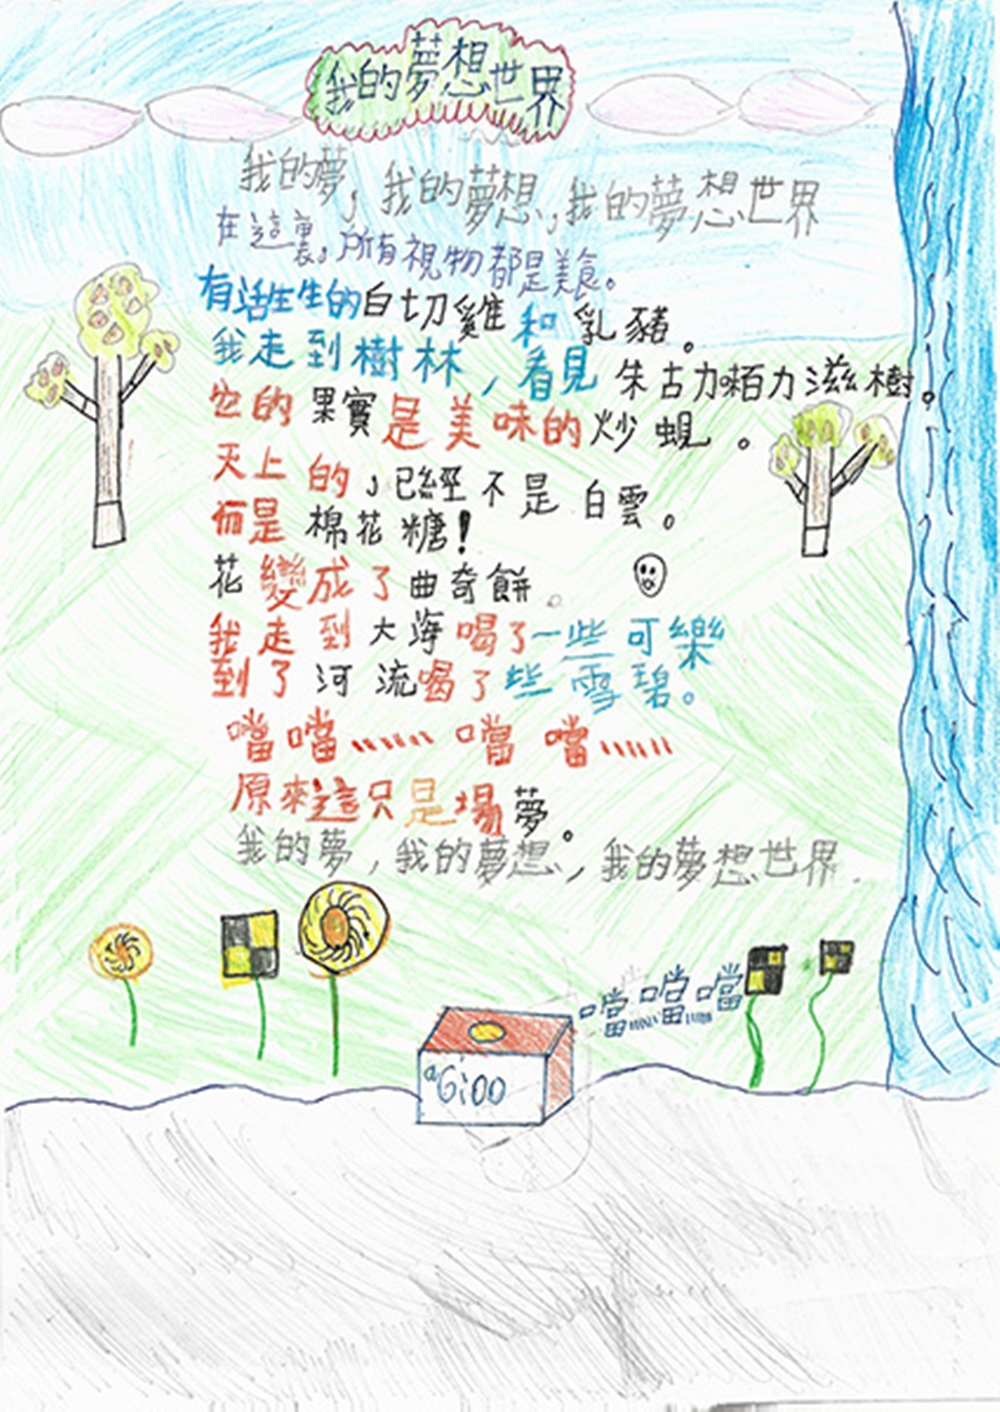 我的夢想世界
我的夢,我的夢想,我的夢想世界
在這裏,所有視物都是美食。
有活生生的白切雞和乳豬。
我走到樹林,看見朱古力栢力滋樹。
它的果實是美味的炒蜆。
天上的,已經不是白雲。
而是棉花糖!
花變成了曲奇餅。
我走到大海喝了一些可樂
到了河流喝了些雪碧。
噹噹......噹噹......
原來這只是場夢。
我的夢,我的夢想,我的夢想世界.
噹噹噹
6:00